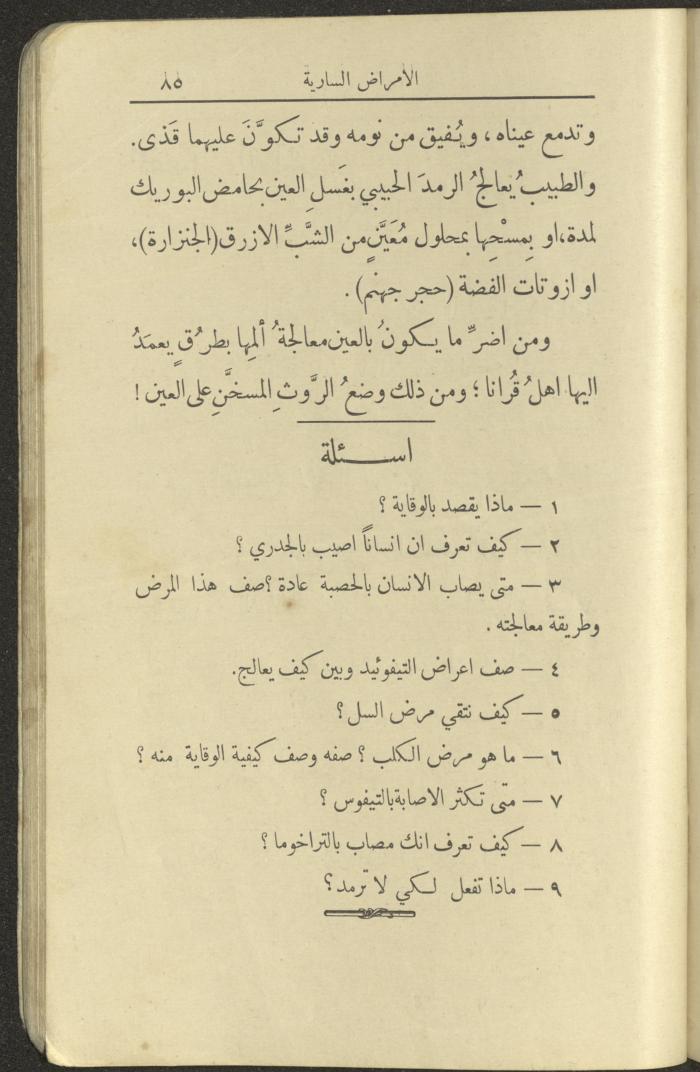 الأمراض السارية ٨٥
وتدمع عيناه ، ويُفيق من نومه وقد تكوَّنَ عليهما قَذى.
والطبيبُ يُعالجُ الرمدَ الحبيبي بغَسلِ العين بحامض البوريك
لمدة، او بِمسْحِها بمحلول مُعَيَّنٍ من الشَّبِّ الازرق (الجنزارة)،
او ازوتات الفضة (حجر جهنم) .
ومن اضرِّ ما يكونُ بالعين معالجةُ ألمِها بطرُقٍ يعمَدُ
اليها اهلُ قُرانا ؛ ومن ذلك وضعُ الرَّوثِ المسخَّنِ على العين !
اسئلة
١ — ماذا يقصد بالوقاية ؟
٢ — كيف تعرف ان انساناً اصيب بالجدري ؟
٣ — متى يصاب الانسان بالحصبة عادة ؟ صف هذا المرض
وطريقة معالجته .
٤ — صف اعراض التيفوئيد وبين كيف يعالج.
٥ — كيف نتقي مرض السل ؟
٦ — ما هو مرض الكلب ؟ صفه وصف كيفية الوقاية منه ؟
٧ — متى تكثر الاصابة بالتيفوس ؟
٨ — كيف تعرف انك مصاب بالتراخوما ؟
٩ — ماذا تفعل لكي لا ترمد ؟